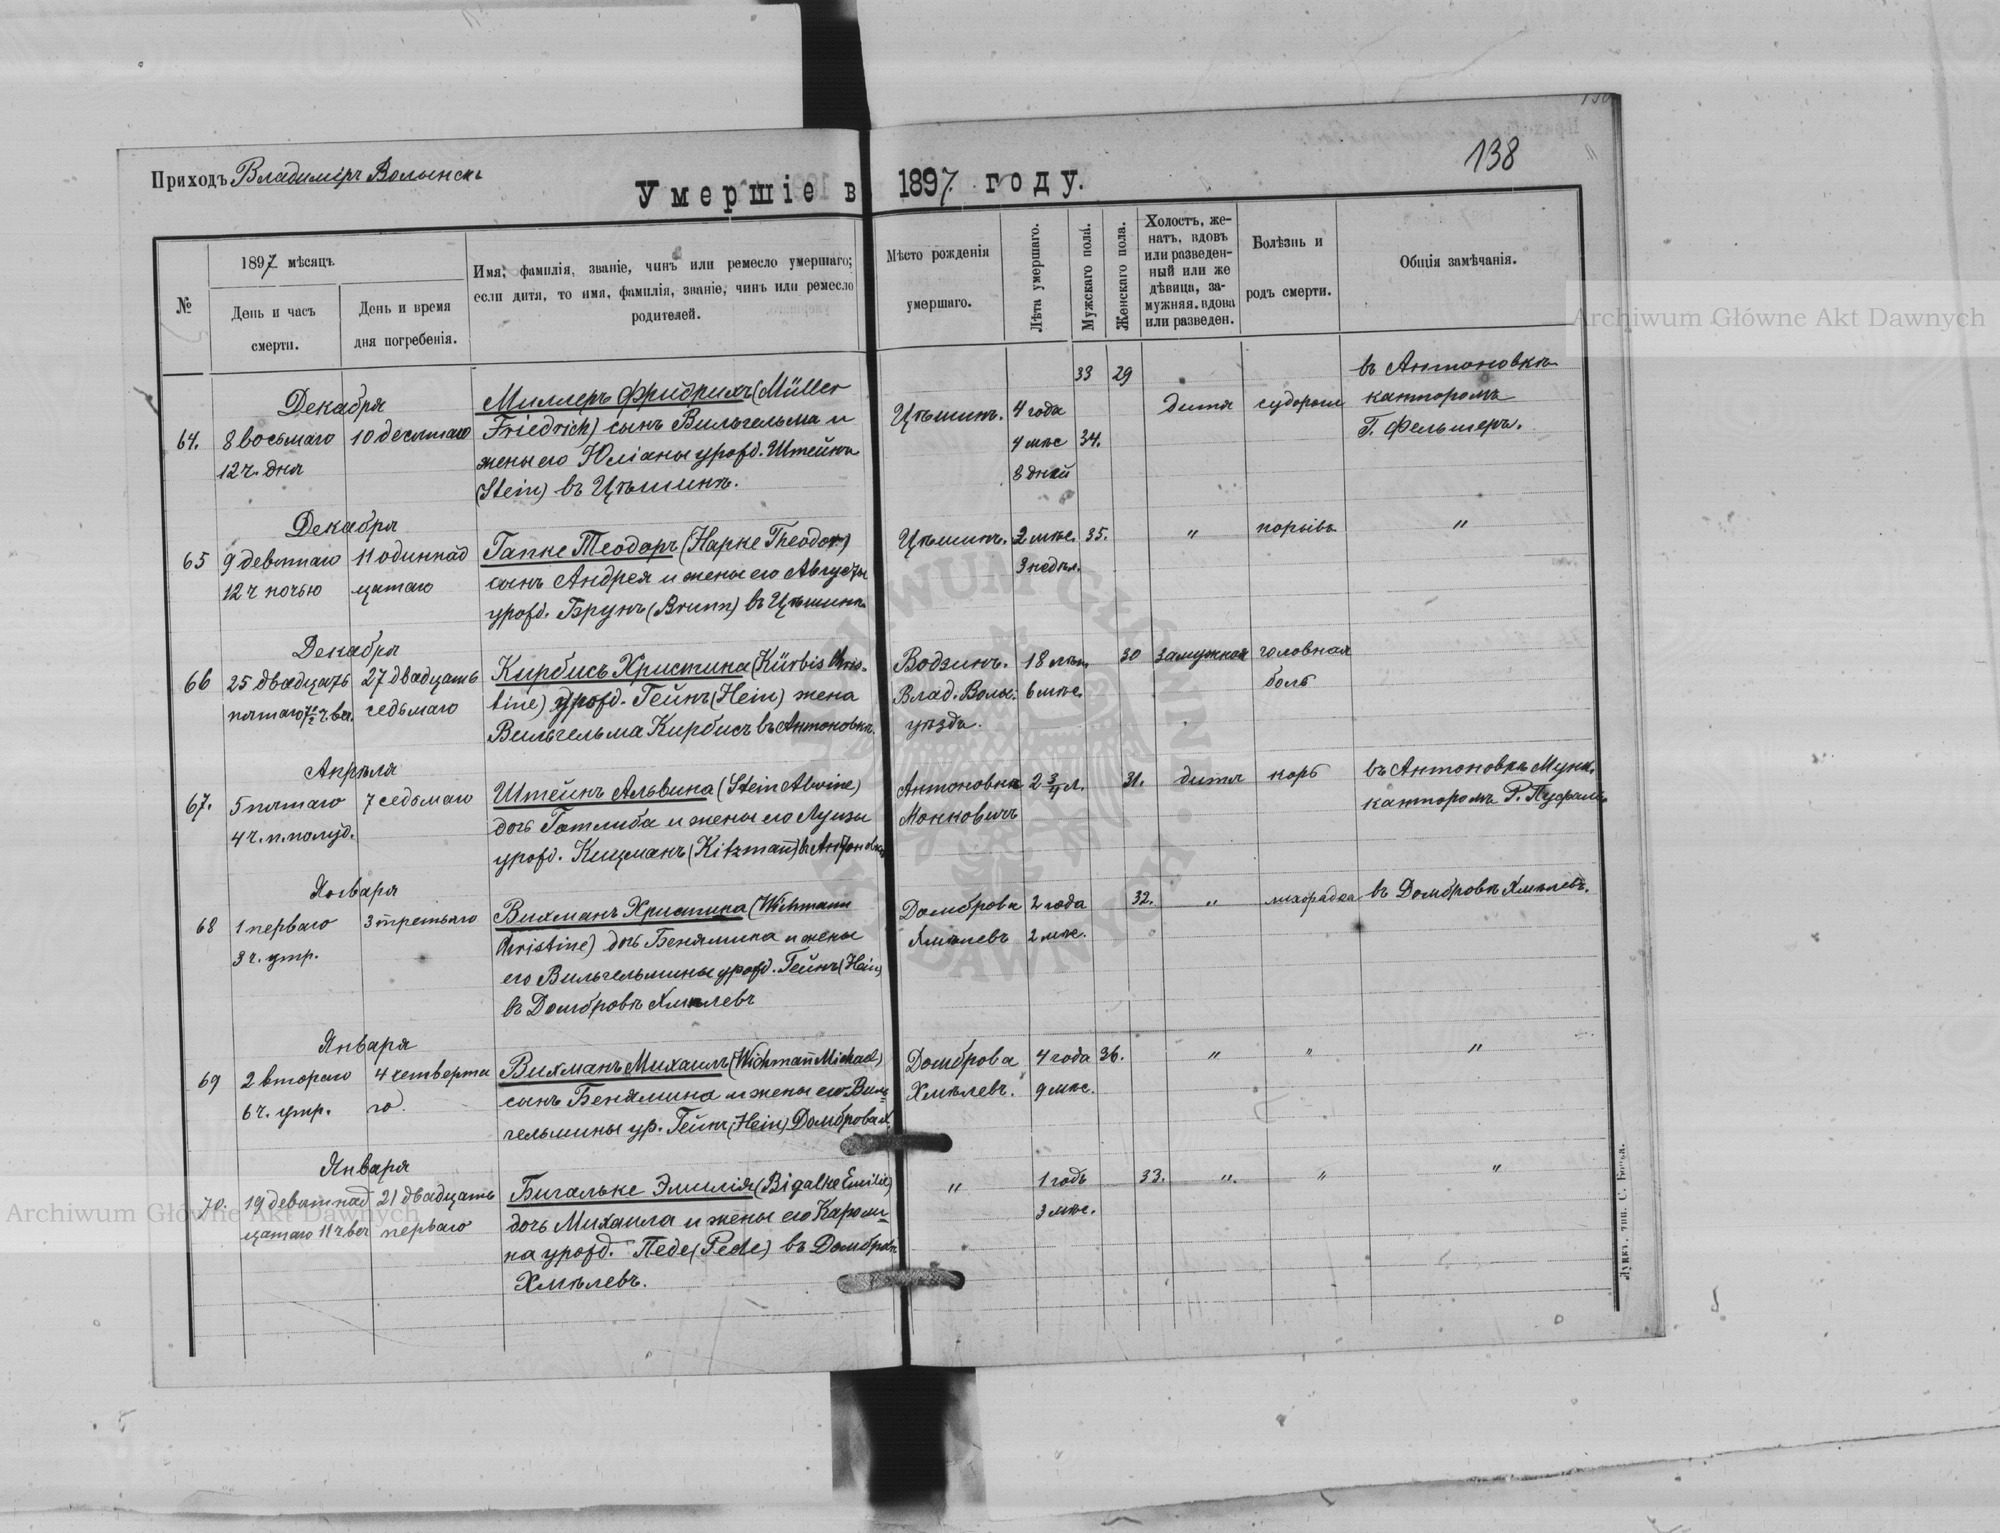 138
Приходъ Владимиръ Волынскъ
Умершіе въ 1897 году.
№
1897 мѣсяцъ
День и часъ смерти.
День и время дня погребенія.
Имя, фамилія, званіе, чинъ или ремесло умершаго;
если дитя, то имя, фамилія, званіе, чинъ или ремесло
родителей.
Мѣсто рожденія
умершаго.
Лѣта умершаго.
Мужскаго пола.
Женскаго пола.
Холостъ, же-
натъ, вдовъ
или разведен-
ный или же
дѣвица, за-
мужняя, вдова
или разведен.
Болѣзнь и
родъ смерти.
Общія замѣчанія.
Archiwum Główne Akt Dawnych
33 29
64.
Декабря
8 восьмаго
12 ч. дня
10 десятаго
Миллеръ Фридрихъ (Müller
Friedrich) сынъ Вильгельма и
жены его Юліаны урожд. Штейнъ
(Stein) въ Цѣшинѣ.
Цѣшинъ.
4 года
4 мѣс
8 дней
34.
дитя
судороги
въ Антоновкѣ
канторомъ
Г. Фельшеръ.
65
Декабря
9 девятаго
12 ч ночью
11 одиннад
цатаго
Гапке Теодоръ (Hapke Theodor)
сынъ Андрея и жены его Августы
урожд. Брунъ (Brunn) въ Цѣшинѣ
Цѣшинъ.
2 мѣс.
3 недѣл.
35.
"
порывъ
"
66
Декабря
25 двадцать
пятаго 7½ ч веч.
27 двадцать
седьмаго
Кирбисъ Христина (Kürbis Chris-
tine) урожд. Гейнъ (Hein) жена
Вильгельма Кирбисъ въ Антоновкѣ.
Водзинъ.
Влад. Волы.
уѣзда.
18 лѣт.
6 мѣс.
30
замужняя
головная
боль
67.
Апрѣля
5 пятаго
4 ч. п. полуд.
7 седьмаго
Штейнъ Альвина (Stein Alwine)
дочь Готлиба и жены его Луизы
урожд. Кицманъ (Kitzmañ) въ Антоновкѣ
Антоновка
Монковичъ
2 3/4 л.
31.
дитя
корь
въ Антоновкѣ Мунк.
канторомъ Р.
68
Января
1 перваго
3 ч. утр.
3 третьяго
Вихманъ Христина (Wichmann
Christine) дочь Беніямина и жены
его Вильгельмины урожд. Гейнъ (Hein)
въ Домбровѣ Хмѣлевъ
Домброва
Хмѣлевъ
2 года
2 мѣс.
32.
"
лихорадка
въ Домбровѣ Хмѣлевъ.
69
Января
2 втораго
6 ч. утр.
4 четверта
го.
Вихманъ Михаилъ (Wichmañ Michael)
сынъ Беніямина и жены его Виль
гельмины ур. Гейнъ (Hein) Домброва Х
Домброва
Хмѣлевъ.
4 года
9 мѣс.
36.
"
"
"
70.
Января
19 девятнад
цатаго 11 ч веч
21 двадцать
перваго
Бигальке Эмилія (Bigalke Emilie)
дочь Михаила и жены его Кароли-
на урожд. Педе (Pede) въ Домбровѣ
Хмѣлевъ.
"
1 годъ
3 мѣс.
33.
"
"
"
Archiwum Główne Akt Dawnych
ARCHIWUM GŁÓWNE AKT DAWNYCH